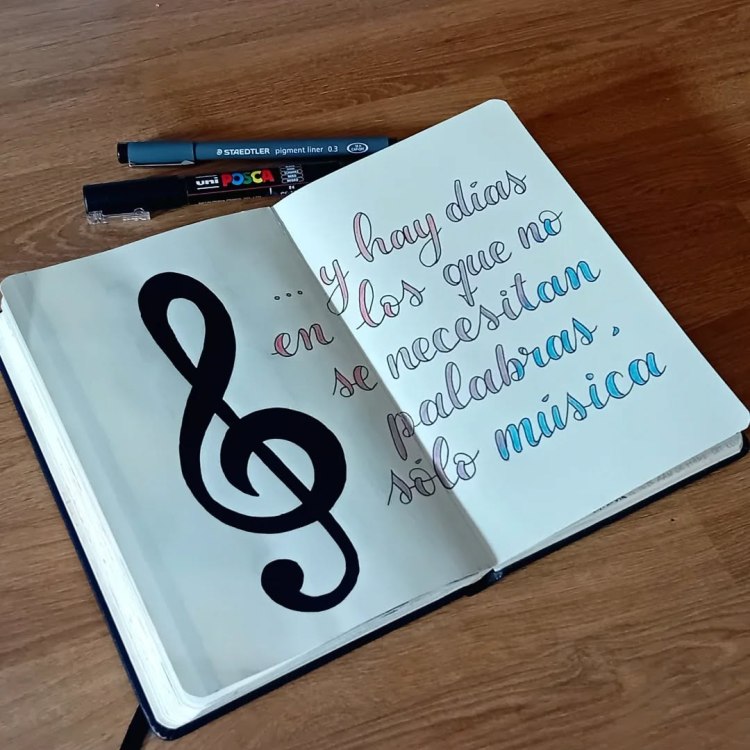 STAEDTLER pigment liner 0.3
uni POSCA
... y hay días
en los que no
se necesitan
palabras,
sólo música